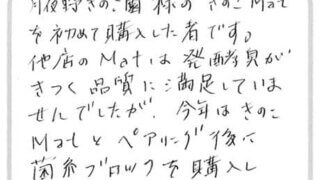 月夜野きのこ園様の きのこMat
を初めて購入した者です。
他店のMatは発酵臭が
きつく品質に満足していま
せんでしたが、今年はきのこ
Matとペアリング後に
菌糸ブロックを購入し